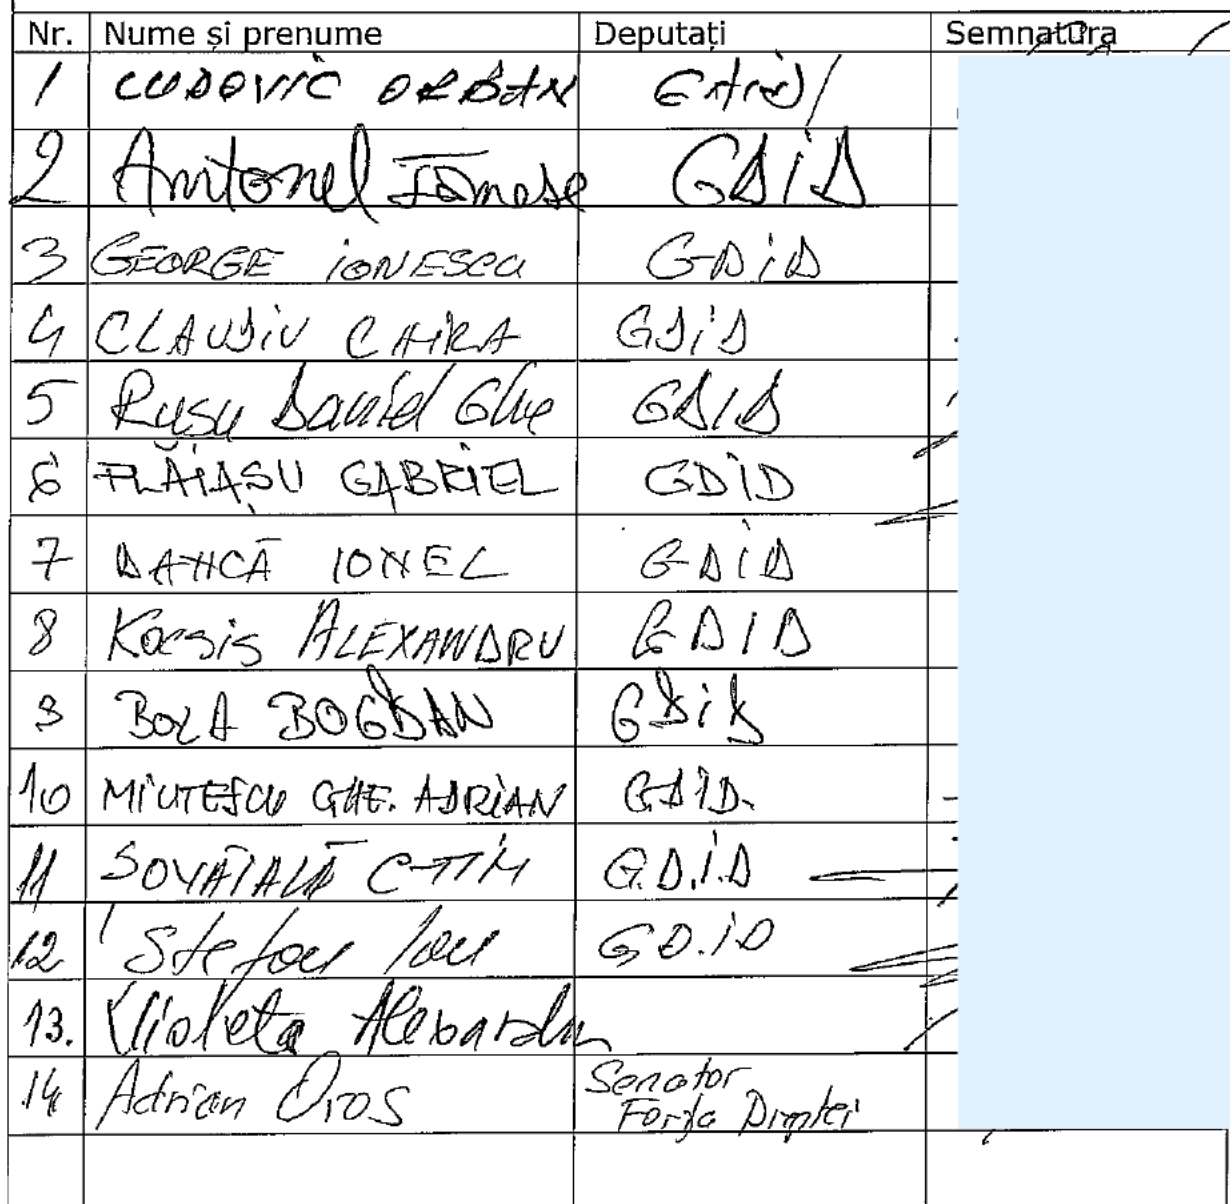 Nr. Nume și prenume Deputați Semnatura
1 LUDOVIC ORBAN GDID
2 Antonel Tănase GDID
3 GEORGE IONESCU GDID
4 CLAUDIU CHIRA GDID
5 Rusu Daniel Ghe GDID
6 PLĂIAȘU GABRIEL GDID
7 DANCĂ IONEL GDID
8 Kocsis ALEXANDRU GDID
9 BOLA BOGDAN GDID
10 MIUTESCU GHE. ADRIAN GDID.
11 ȘOVĂIALĂ C-TIN G.D.I.D
12 Stefan Ion GD.ID
13. Violeta Alexandru
14 Adrian Oros Senator
Forța Dreptei